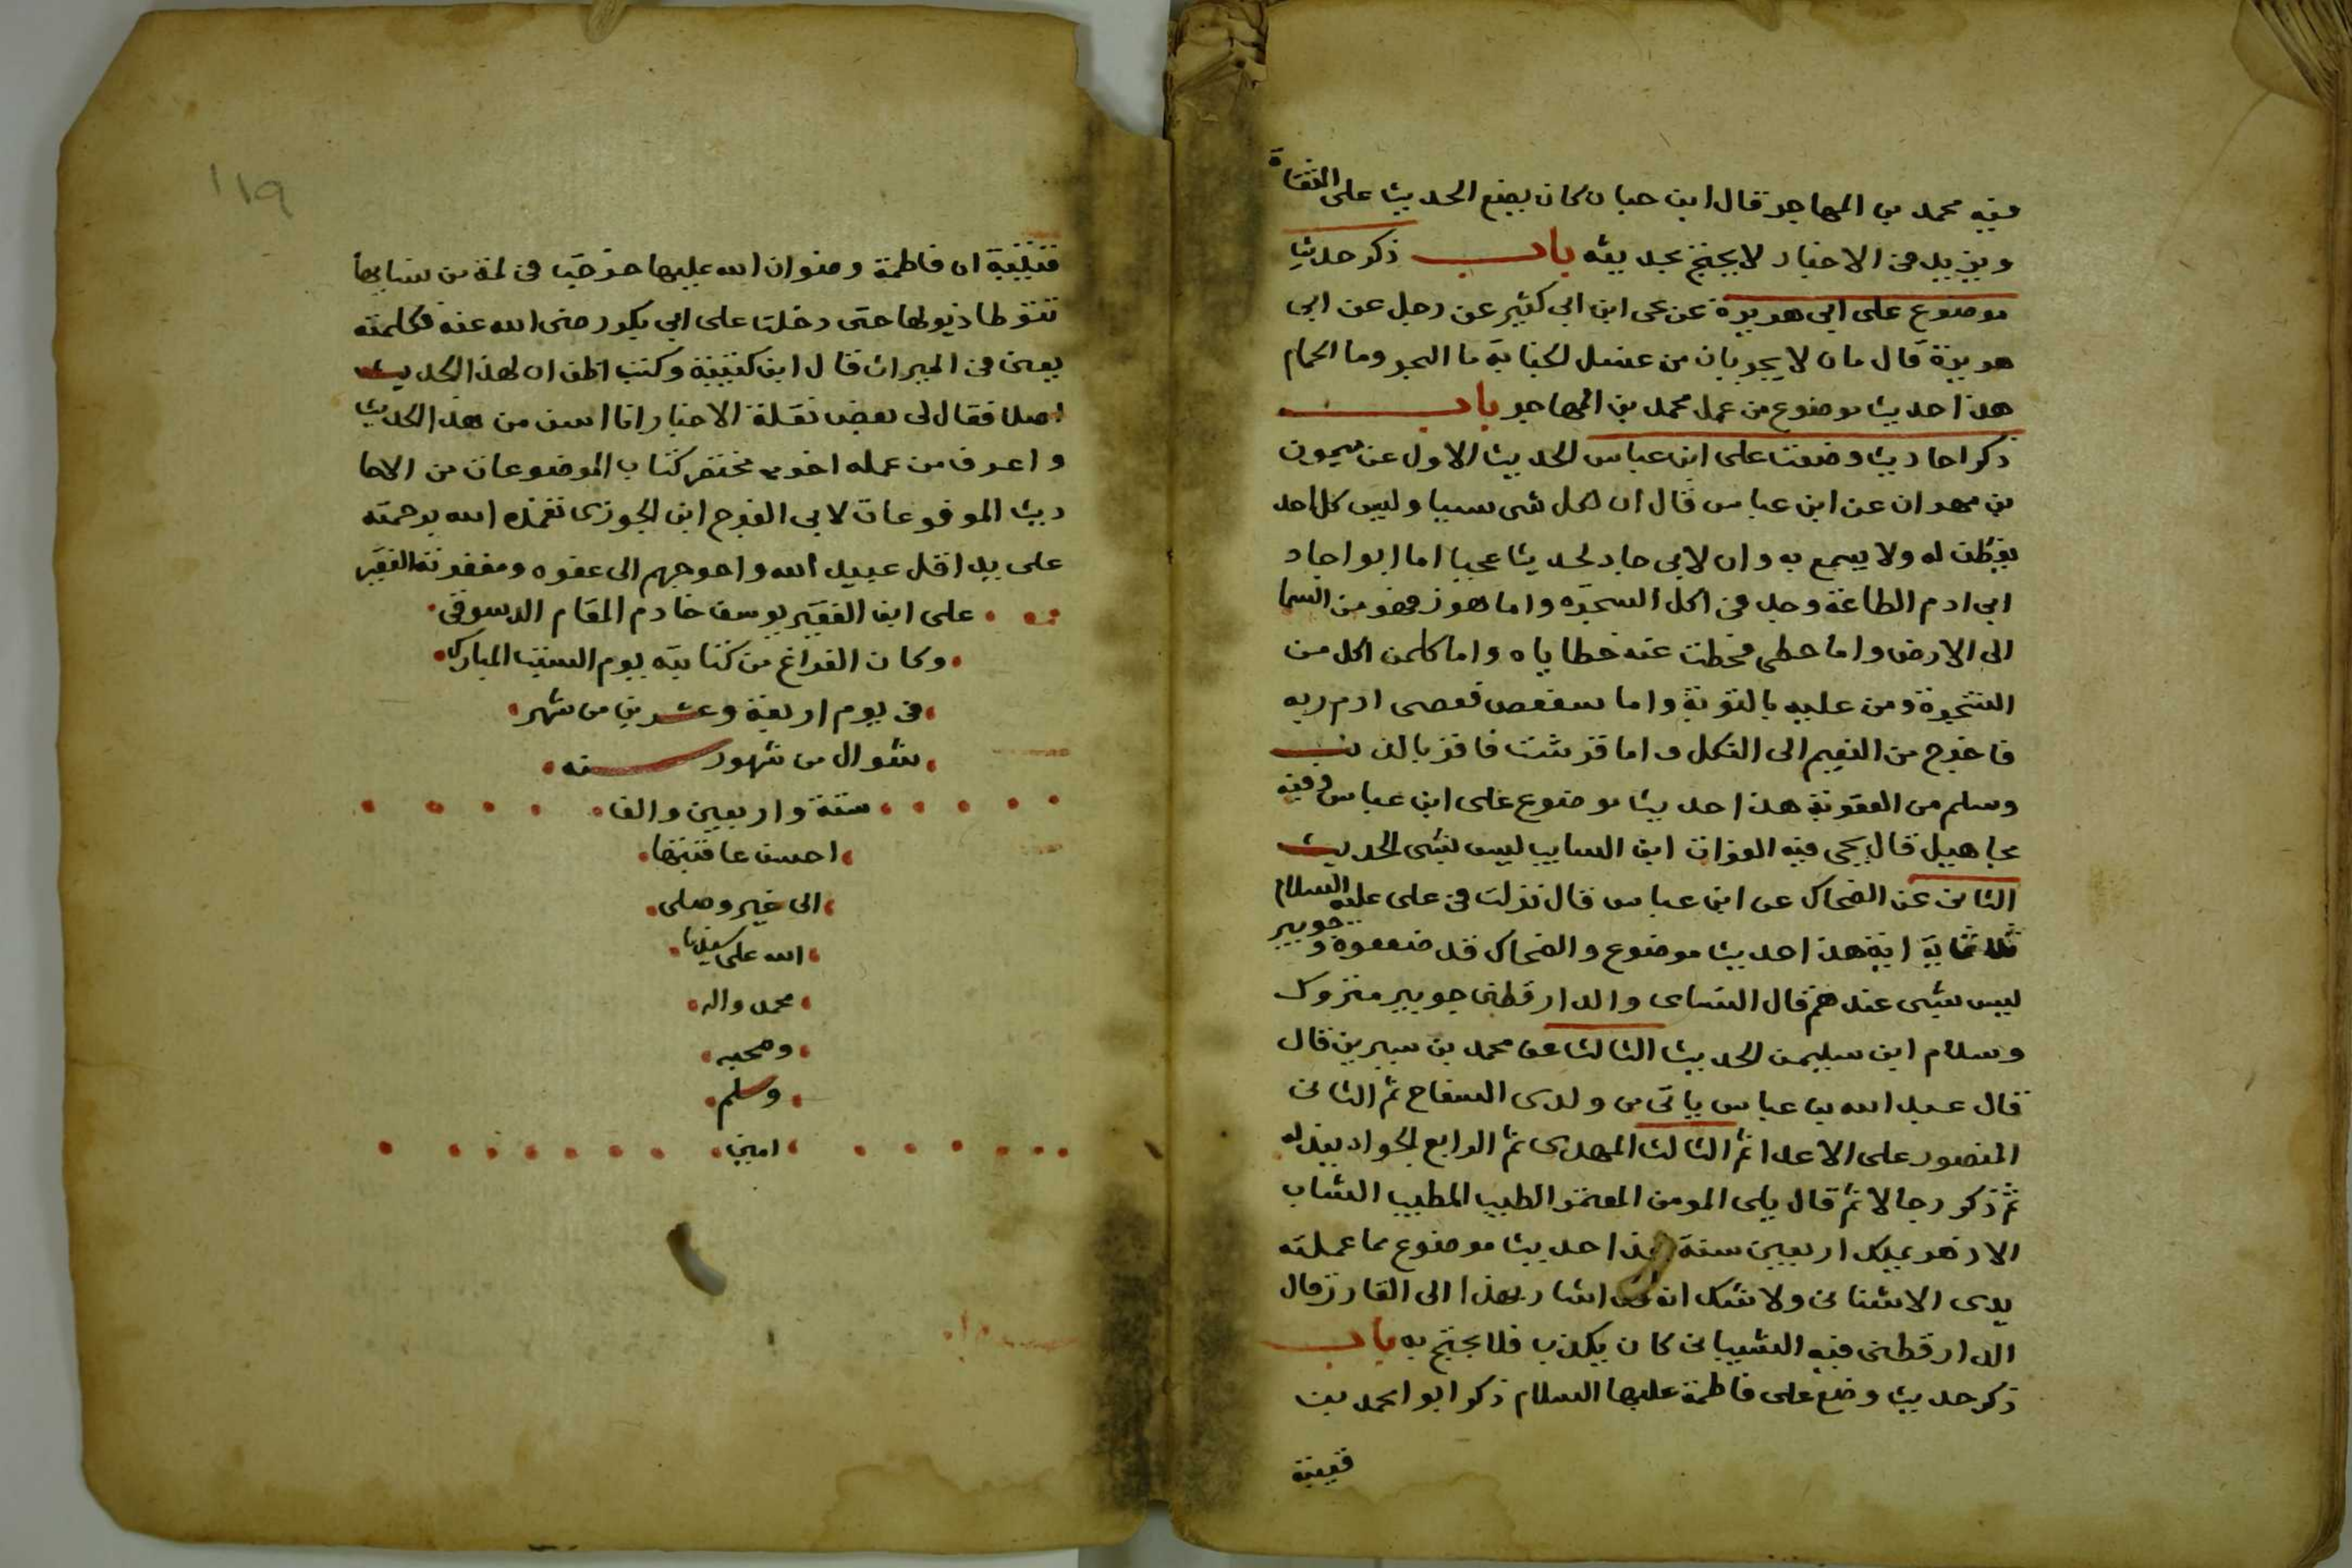 فيه محمد بن المهاجر قال ابن حبان كان يضع الحديث على الثقاة
ويزيد في الاخبار لا يحتج بحديثه باب ذكر حديث
موضوع على ابي هريرة عن يحى ابن ابي كثير عن رجل عن ابي
هريرة قال مان لا يجريان من غسل الجنابة ما البحر وما الحمام
هذا حديث موضوع من عمل محمد بن المهاجر باب
ذكر احاديث وضعت على ابن عباس الحديث الاول عن ميمون
بن مهران عن ابن عباس قال ان لكل شى سببا وليس كل احد
يفطن له ولا يسمع به وان لابي جاد لحديثا عجبا اما ابو اجاد
ابى ادم الطاعة وجد في اكل الشجرة واما هوز فهو من السما
الى الارض واما حطى فحطت عنه خطاياه واما كلمن اكل من
الشجرة ومن عليه بالتوبة واما سعفص فعصى ادم ربه
فاخرج من النعيم الى النكل واما قرشت فاقر بالذنب
وسلم من العقوبة هذا حديث موضوع على ابن عباس وفيه
مجاهيل قال يحى فيه الفرات ابن السايب ليس بشى الحديث
الثانى عن الضحاك عن ابن عباس قال نزلت في على عليه السلام
ثلاثماية اية هذا حديث موضوع والضحاك قد ضعفوه وجويبر
ليس بشى عندهم قال النساى والدارقطنى جويبر متروك
وسلام ابن سليمن الحديث الثالث عن محمد بن سيرين قال
قال عبد الله بن عباس ياتى من ولدى السفاح ثم الثانى
المنصور على الاعدا ثم الثالث المهدى ثم الرابع الجواد بيذله
ثم ذكر رجالا ثم قال يلى المومن المعتمر الطيب المطيب الشاب
الازهر يملك اربعين سنة هذا حديث موضوع مما عملته
يدى الاشنانى ولا شك انه اشار بهذا الى القادر قال
الدارقطنى فيه الشيبانى كان يكذب فلا يحتج به باب
ذكر حديث وضع على فاطمة عليها السلام ذكر ابو احمد بن
قتيبة
١١٩
قتيبة ان فاطمة رضوان الله عليها خرجت في لمة من نسايها
تتوطا ذيولها حتى دخلت على ابي بكر رضى الله عنه فكلمته
يعنى في الميراث قال ابن كتيبة وكنت اظن ان لهذا الحديث
اصلا فقال لى بعض نقلة الاخبار انا اسن من هذا الحديث
واعرف من عمله اخره مختصر كتاب الموضوعات من الاحا
ديث المرفوعات لابى الفرج ابن الجوزى تغمده الله برحمته
على يد اقل عبيد الله واحوجهم الى عفوه ومغفرته الفقير
على ابن الفقير يوسف خادم المقام الدسوقى
وكان الفراغ من كتابته يوم السبت المبارك
في يوم اربعة وعشرين من شهر
شوال من شهور سنه
ستة واربعين والف
احسن عاقبتها
الى خير وصلى
الله على سيدنا
محمد واله
وصحبه
وسلم
امين